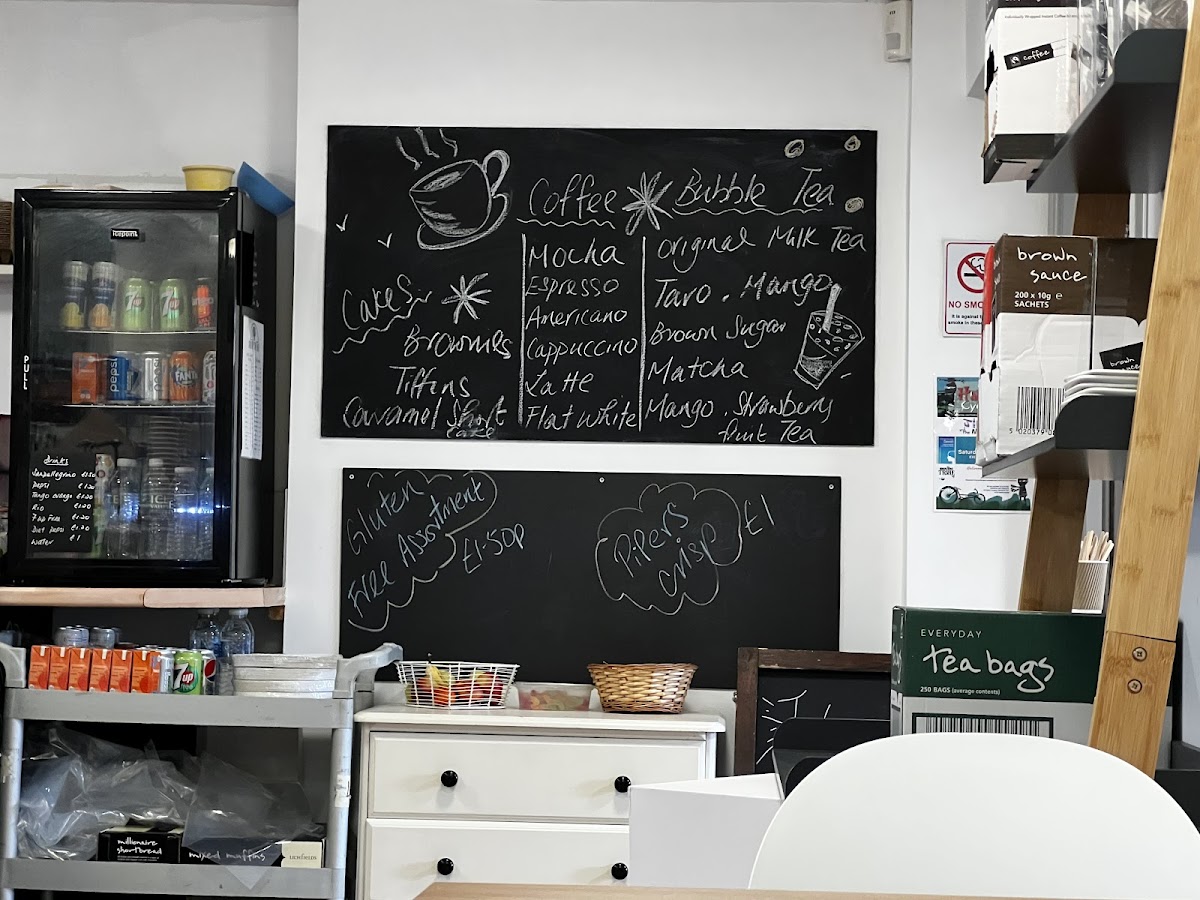 Coffee
Bubble Tea
Mocha
Espresso
Americano
Cappuccino
Latte
Flat white
Original Milk Tea
Taro . Mango
Brown Sugar
Matcha
Mango . Strawberry
fruit Tea
Cakes
Brownies
Tiffins
Caramel Short
cake
Gluten
Free Assortment
£1-50p
Pipers
crisp
£1
icepoint
7up
7up
pepsi
FANTA
drinks
Pepsi £1.20
Tango orange £1.20
Rio £1.20
7up Free £1.20
Diet pepsi £1.20
water £1
7up
millionaire
shortbread
mixed muffins
coffee
NO SMO
It is against
smoke in these
brown
sauce
200 x 10g e
SACHETS
brown
EVERYDAY
tea bags
250 BAGS (average contents)